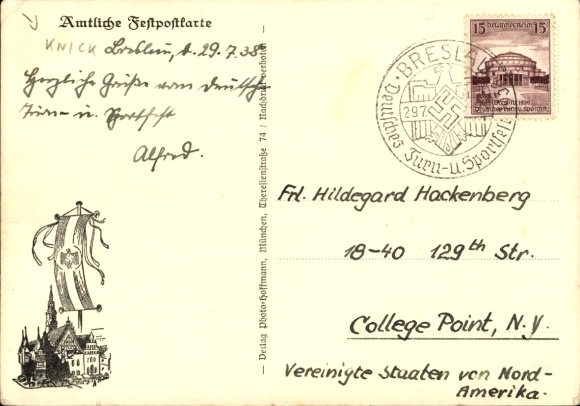 Amtliche Festpostkarte
KNICK
Breslau, d. 29.7.38
Herzliche Grüße vom Deutschen
Turn- u. Sportfest
Alfred.
Verlag Photo-Hoffmann, München, Theresienstraße 74 / Nachdruck verboten
15 Deutsches Reich 15
Breslau 1938
Deutsches Turn- u. Sportfest
BRESLAU
29.7.
Deutsches Turn-u. Sportfest
Frl. Hildegard Hackenberg
18-40 129th Str.
College Point, N.Y.
Vereinigte Staaten von Nord-
Amerika.